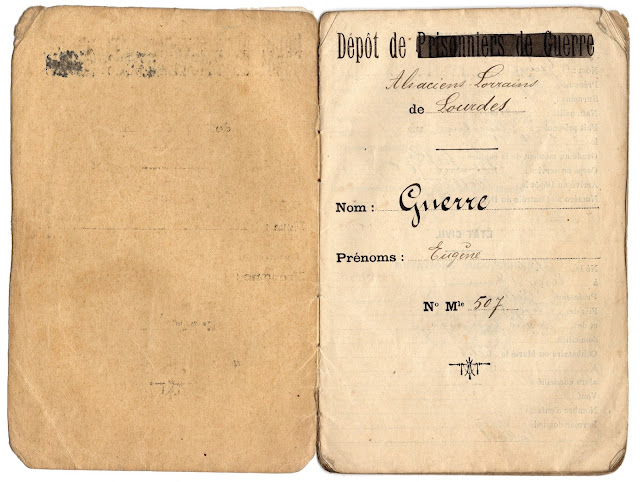 Dépôt de Prisonniers de Guerre
Alsaciens Lorrains
de Lourdes
Nom : Guerre
Prénoms : Eugène
N° Mle 507
ÉTAT CIVIL